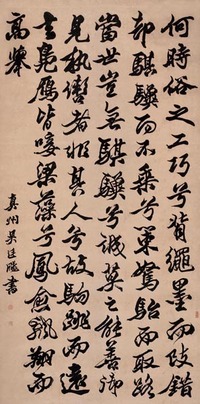 何時俗之工巧兮背繩墨而改錯
却騏驥而不乘兮策駑駘而取路
當世豈無騏驥兮誠莫之能善御
見執轡者非其人兮故駒跳而遠
去鳧雁皆唼梁藻兮鳳愈飄翔而
高舉
真州吳廷颺書